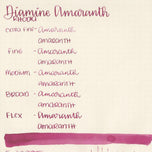 Diamine Amaranth
extra fine - Amaranth
amaranth
fine - Amaranth
amaranth
medium - Amaranth
amaranth
Broad - Amaranth
amaranth
Flex - Amaranth
amaranth